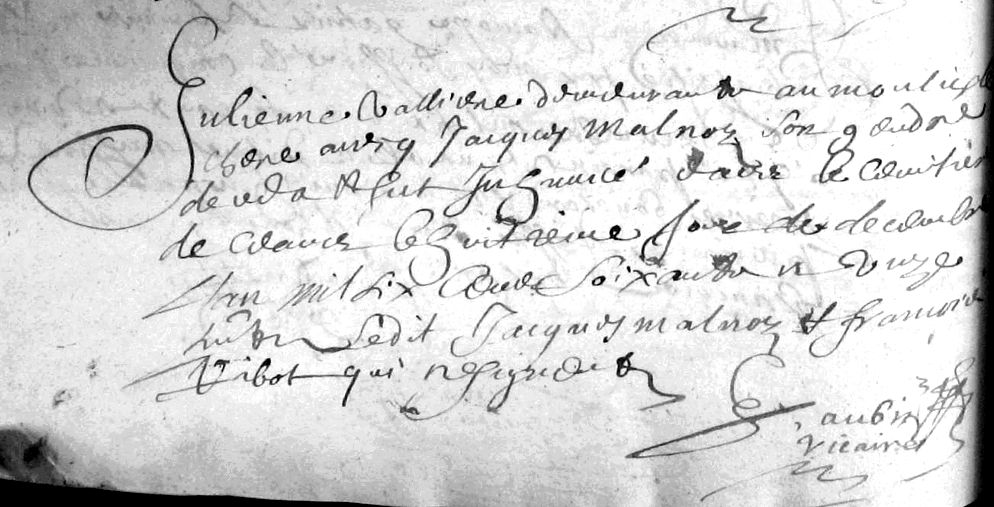 Julienne Valliere demeurante au moulin de
chere avecq Jacques Malnoy son gendre
deceda & fut Inhumé dans le cemitiere
de ceans le huitieme jour de decembre
l'an mil six cents soixante et unze
ledit Jacques malnoy & francois
Ribot qui ne signent
G aubin
vicaire